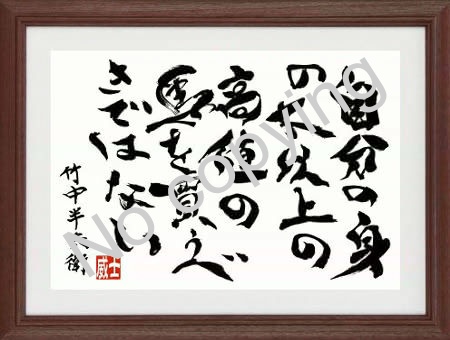 自分の身
の丈以上の
高値の
馬を買うべ
きではない
竹中半兵衛
士威
No copying